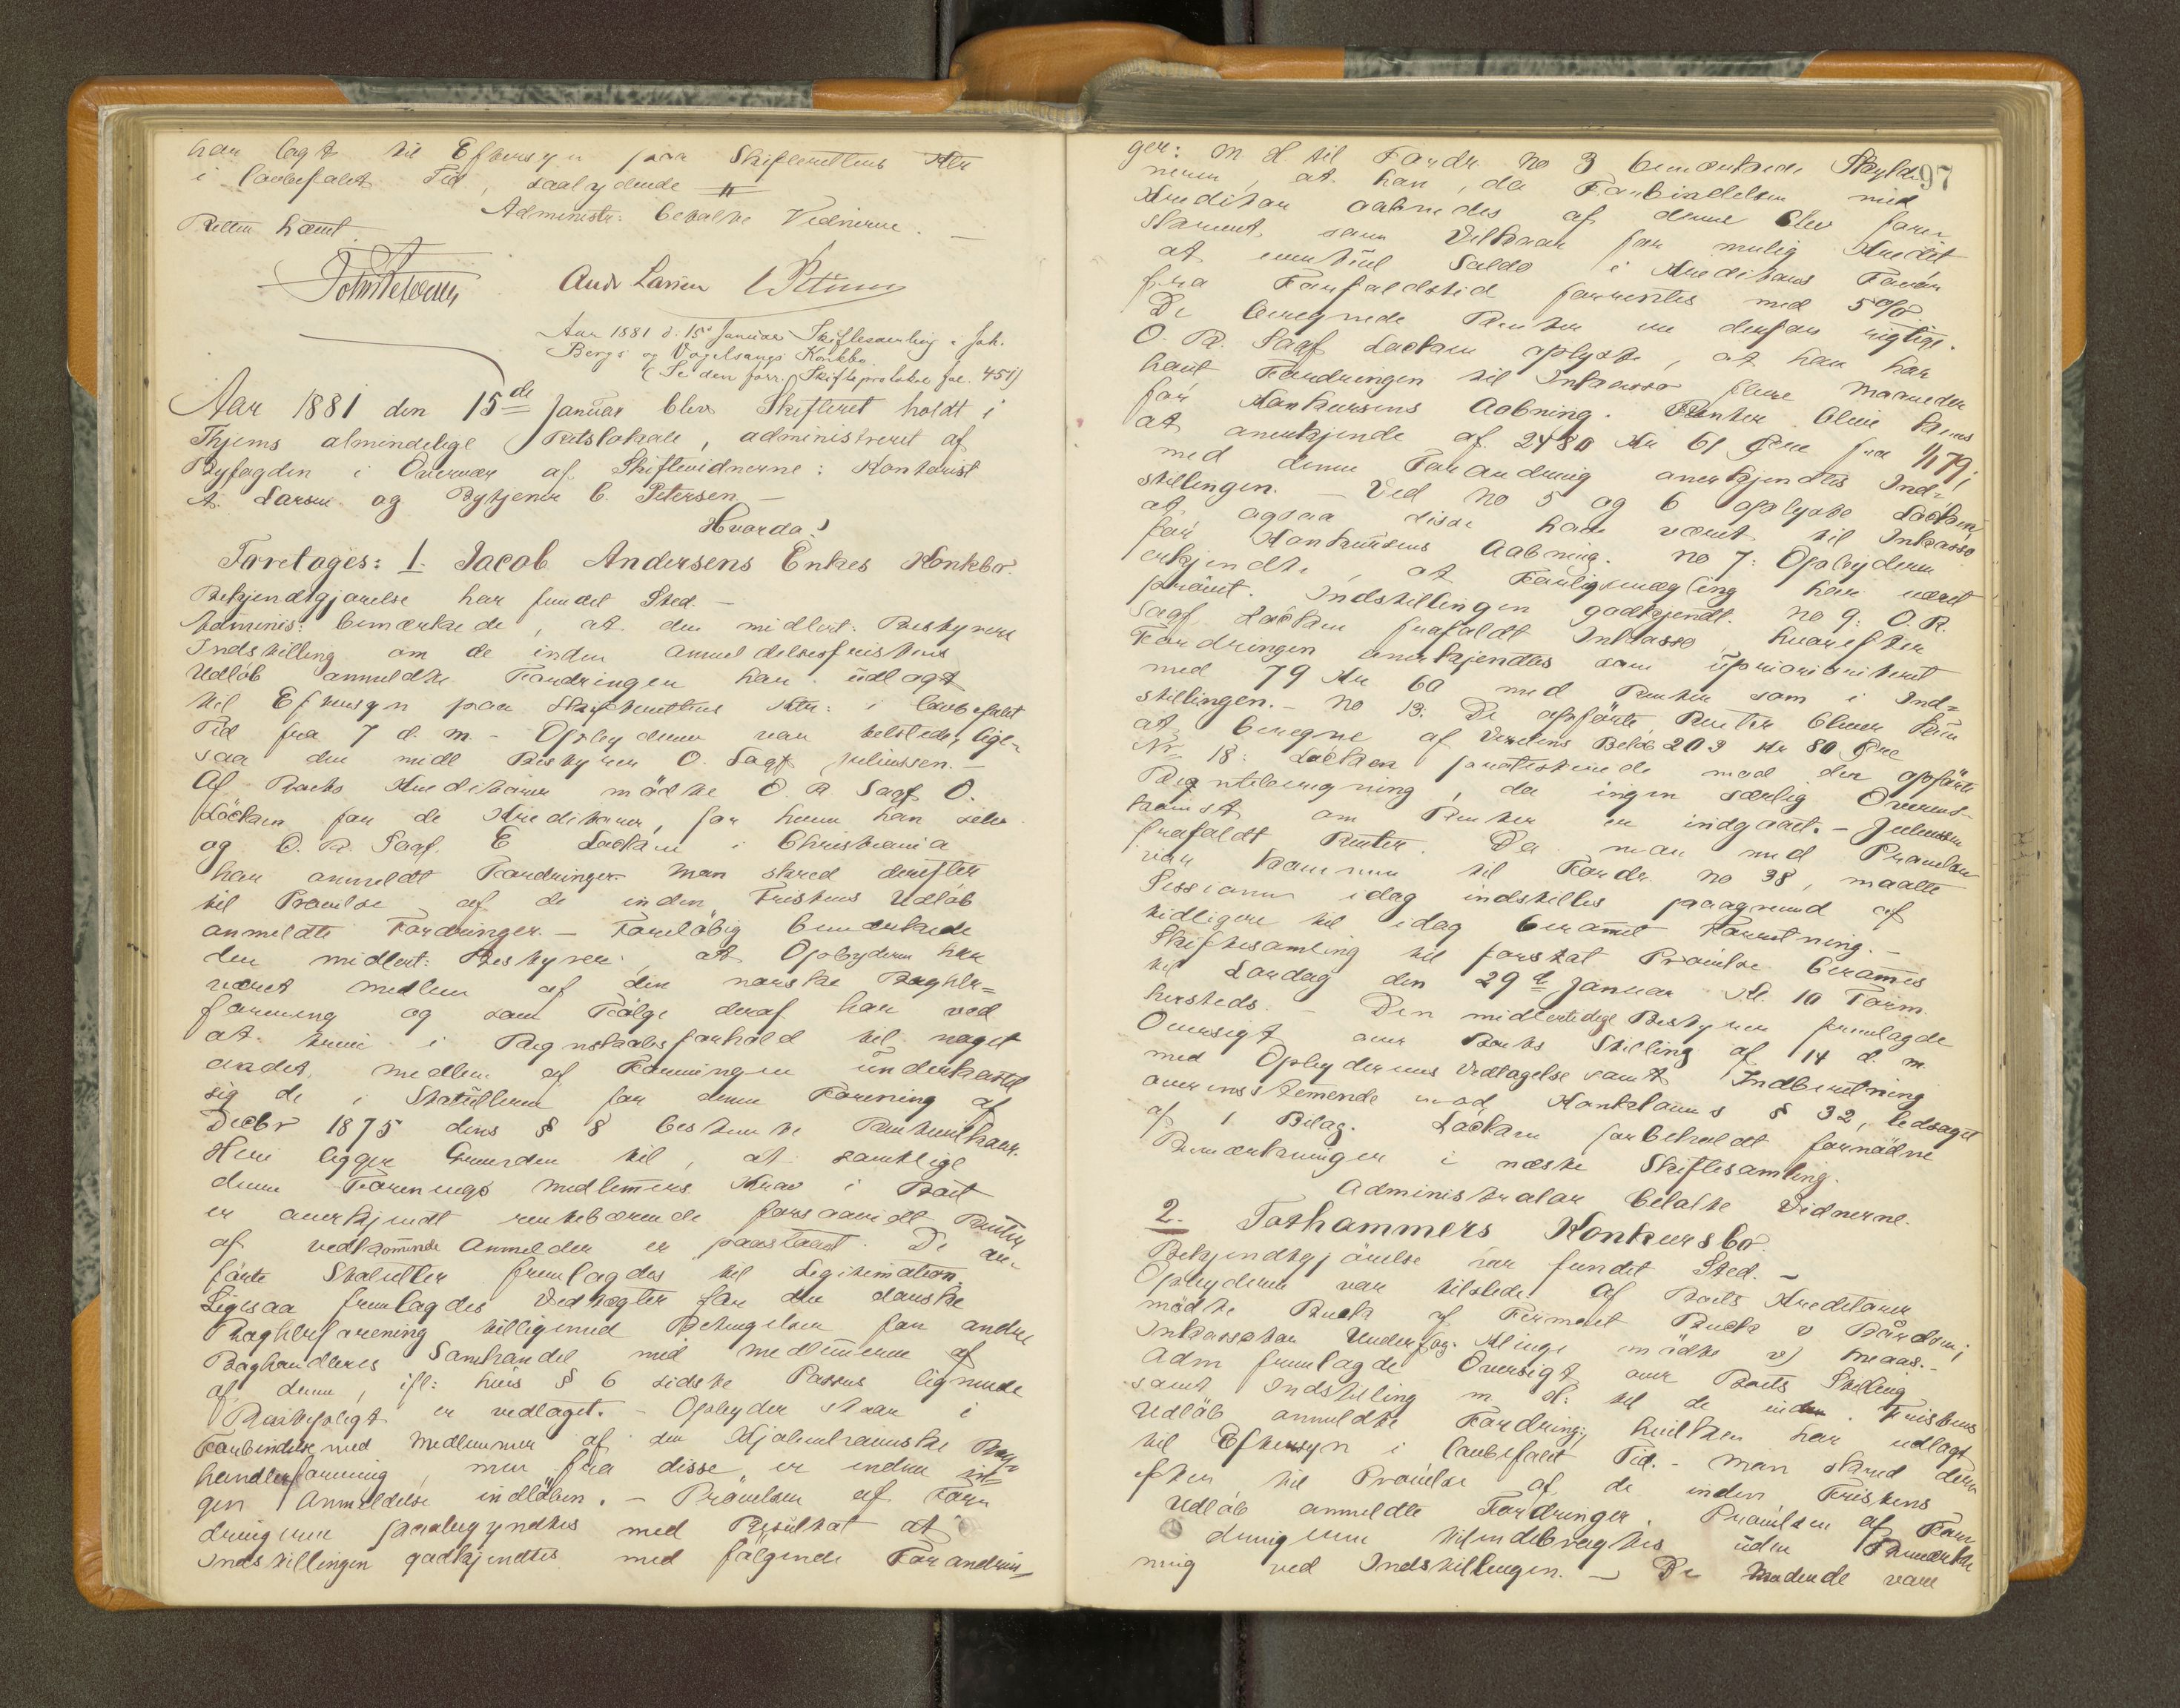 har lagt til Eftersyn paa Skifterettens Ktr
i lovbefalet Tid, saalydende #
Administr: betalte Vidnerne. —
Retten hævet.
And Larsen C Petersen
Aar 1881 d. 15de Januar Skiftesamling i Joh.
Bergs og Vogelsangs Konkbo
(Se den forr. Skifteprotokol fol. 451)
Aar 1881 den 15de Januar blev Skifteret holdt i
Thjems almindelige Retslokale, administreret af
Byfogden i Overvær af Skiftevidnerne: Kontorist
A. Larsen og Bytjener C. Petersen —
Hvorda:
Foretoges: 1. Jacob Andersens Enkes Konkbo.
Bekjendtgjørelse har fundet Sted. —
Adminis: bemærkede, at den midlert: Bestyrers
Indstilling om de inden Anmeldelsesfristens
Udløb anmeldte Fordringer har udlagt
til Eftersyn paa Skifterettens Ktr: i lovbefalet
Tid fra 7 d. M. — Opbyderen var tilstede, lige-
saa den midl Bestyrer O. Sagf Juliussen. —
Af Boets Kreditorer mødte O. R Sagf O.
Løcken for de Kreditorer, for hvem han selv
og O. R. Sagf. E Løcken i Christiania
har anmeldt Fordringer. Man skred derefter
til Prøvelse af de inden Fristens Udløb
anmeldte Fordringer. — Foreløbig bemærkede
den midlert: Bestyrer, at Opbyderen har
været Medlem af den norske Boghdl=
forening og som Følge deraf har ved
at træde i Regnskabsforhold til noget
andet Medlem af Foreningen underkastet
sig de i Statutterne for denne Forening af
Decbr 1875 dens § 8 bestemte Rentevilkaar.
Heri ligger Grunden til, at samtlige
denne Forenings Medlemers Krav i Boet
er anerkjendt rentebærende forsaavidt Renter
af vedkommende Anmelder er paastaaet. De an-
førte Statutter fremlagdes til Legitimation.
Ligesaa fremlagdes Vedtægter for den danske
Boghdlrforening tilligemed Betingelser for andre
Boghandleres Samhandel med Medlemerne af
af denne, ifl: hvis § 6 sidste Passus lignende
Rentepligt er vedtaget. — Opbyder staar i
Forbindelse med Medlemmer af den Kjøbenhavnske Bog-
handlerforening, men fra disse er endnu in-
gen Anmeldelse indløben. — Prøvelsen af For-
dringerne paabegyndtes med Resultat at
Indstillingen godkjendtes med følgende Forandrin-
97
ger: M H til Fordr. No 3 bemærkede Skyld-
neren, at han, da Forbindelsen med
Kreditor aabnedes af denne blev fore-
skrevet som Vilkaar for mulig Kredit
at eventuel Saldo i Kreditors Favør
fra Forfaldstid forrentes med 5 o/o
De beregnede Renter er derfor rigtige.
O. R. Sagf Løcken oplyste, at han har
havt Fordringen til Inkasso flere Maaneder
før Konkursens Aabning. Renter bliver kuns
at anerkjende af 2480 Kr 61 Øre fra 1/1 79;
med denne Forandring anerkjendtes Ind=
stillingen. — Ved No 5 og 6 oplyste Løcken,
at ogsaa disse havde været til Inkasso
før Konkursens Aabning. No 7: Opbyderen
erkjendte, at Forligsmægling har været
prøvet. Indstillingen godkjendt. No 9: O. R.
Sagf Løcken frafaldt Inkasso, hvorefter
Fordringen anerkjendtes som upriorioriteret
med 79 Kr 60 med Renter som i Ind=
stillingen. — No 13: De opførte Renter bliver kun
at beregne af Varens Beløb 203 Kr 80 Øre
Nr. 18: Løcken protesterede mod den opførte
Renteberegning, da ingen særlig Overens-
komst om Renter er indgaaet. — Juliussen
frafaldt Renter. Da man med Prøvelsen
var kommen til Fordr. No 38, maatte
Sessionen idag indstilles paagrund af
tidligere til idag beramet Forretning. —
Skiftesamling til forsat Prøvelse berammes
til Lørdag den 29de Januar Kl. 10 Form.
hersteds. — Den midlertidige Bestyrer fremlagde
Oversigt over Boets Stilling af 14 d. M.
med Opbyderens Vedtagelse samt Indberetning
overensstemmende med Konkslovens § 32, ledsaget
af 1 Bilag. Løcken forbeholdt fornødne
Bemærkninger i næste Skiftesamling.
Administrator betalte Vidnerne.
2. Forhammers Konkursbo.
Bekjendtgjørelse har fundet Sted. —
Opbyderen var tilstede. Af Boets Kreditorer
mødte Buck af Firmaet Buck &
Inkassator Underfog. Klinge mødte
Adm fremlagde Oversigt over Boets Stilling
samt Indstilling m. H. til de inden Fristens
Udløb anmeldte Fordring:, hvilken har udlagt
til Eftersyn i lovbefalet Tid. — Man skred der-
efter til Prøvelse af de inden Fristens
Udløb anmeldte Fordringer. Prøvelsen af For-
dringerne tilendebragtes uden Bemærk-
ning ved Indstillingen. — De Mødende vare